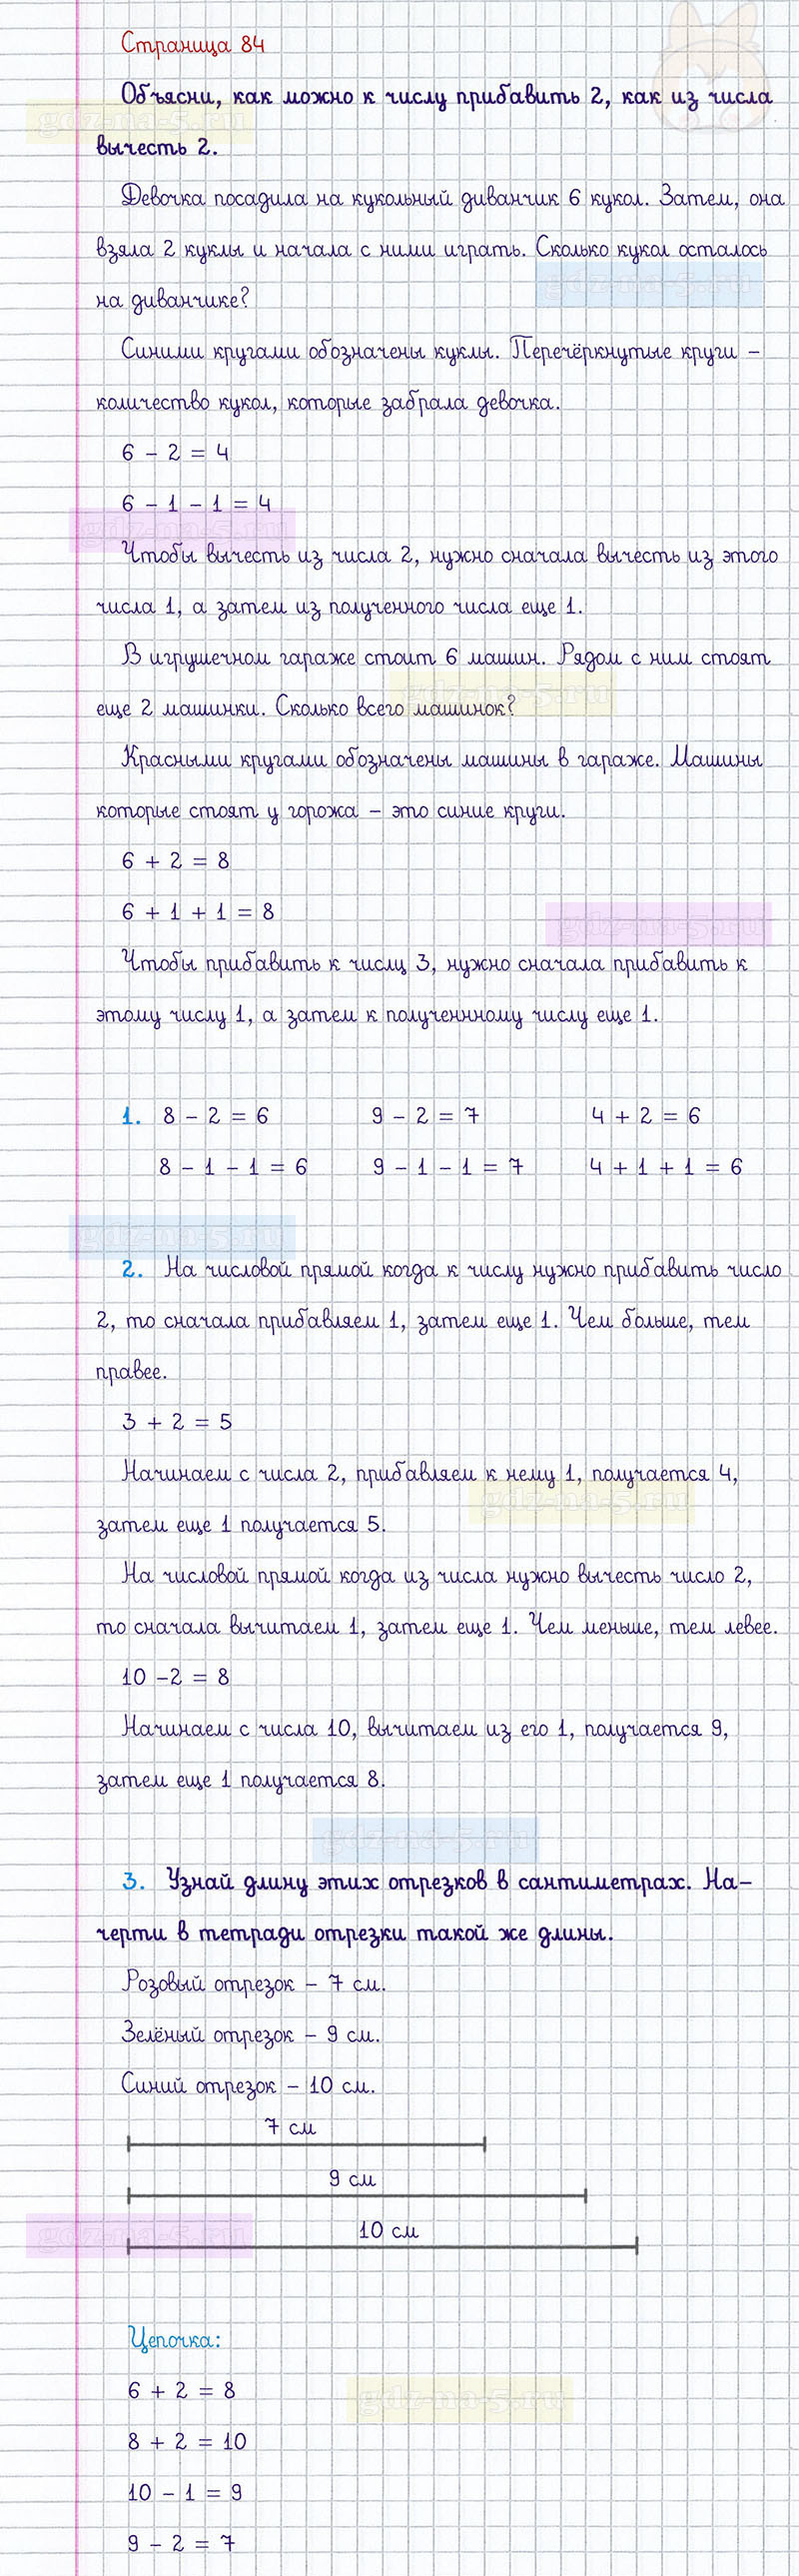 Страница 84
Объясни, как можно к числу прибавить 2, как из числа
вычесть 2.
gdz-na-5.ru
Девочка посадила на кукольный диванчик 6 кукол. Затем, она
взяла 2 куклы и начала с ними играть. Сколько кукол осталось
gdz-na-5.ru
на диванчике?
Синими кругами обозначены куклы. Перечёркнутые круги –
количество кукол, которые забрала девочка.
6 – 2 = 4
6 – 1 – 1 = 4
gdz-na-5.ru
Чтобы вычесть из числа 2, нужно сначала вычесть из этого
числа 1, а затем из полученного числа еще 1.
В игрушечном гараже стоит 6 машин. Рядом с ним стоят
gdz-na-5.ru
еще 2 машинки. Сколько всего машинок?
Красными кругами обозначены машины в гараже. Машины
которые стоят у горожа – это синие круги.
6 + 2 = 8
6 + 1 + 1 = 8
gdz-na-5.ru
Чтобы прибавить к числу 3, нужно сначала прибавить к
этому числу 1, а затем к полученнному числу еще 1.
1. 8 – 2 = 6 9 – 2 = 7 4 + 2 = 6
8 – 1 – 1 = 6 9 – 1 – 1 = 7 4 + 1 + 1 = 6
gdz-na-5.ru
2. На числовой прямой когда к числу нужно прибавить число
2, то сначала прибавляем 1, затем еще 1. Чем больше, тем
правее.
3 + 2 = 5
Начинаем с числа 2, прибавляем к нему 1, получается 4,
gdz-na-5.ru
затем еще 1 получается 5.
На числовой прямой когда из числа нужно вычесть число 2,
то сначала вычитаем 1, затем еще 1. Чем меньше, тем левее.
10 –2 = 8
Начинаем с числа 10, вычитаем из его 1, получается 9,
затем еще 1 получается 8.
gdz-na-5.ru
3. Узнай длину этих отрезков в сантиметрах. На-
черти в тетради отрезки такой же длины.
Розовый отрезок – 7 см.
Зелёный отрезок – 9 см.
Синий отрезок – 10 см.
7 см
9 см
10 см
gdz-na-5.ru
Цепочка:
6 + 2 = 8
gdz-na-5.ru
8 + 2 = 10
10 – 1 = 9
9 – 2 = 7